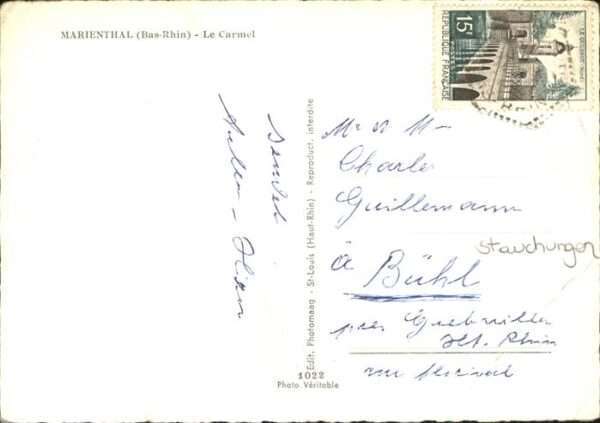 MARIENTHAL (Bas-Rhin) - Le Carmel
15F
REPUBLIQUE FRANÇAISE
POSTES
LE QUESNOY-NORD
Edit. Photomaag - St-Louis (Haut-Rhin) - Reproduct. interdite
1022
Photo Véritable
Mr et M-
Charles
Guillemann
à Bühl
près Guebwiller
Ht. Rhin
rue
stauchungen